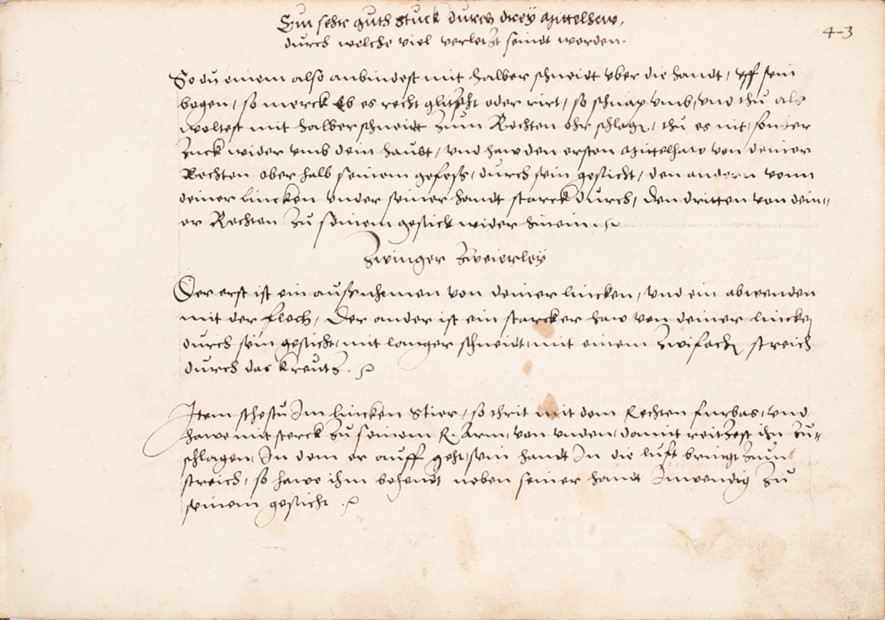 Ein sehr guth stuck durch drey Mittelhaw,
durch welche viel verletzt seindt worden.
43
So du einem also anbindest mit halber schneidt vber die handt, vff sein
bogen, so merck Eb es recht glitscht oder rirt, so schnap vmb, vnd thu als
woltest mit halber schneidt zum Rechten ohr schlagen, thu es nit, sonder
Zuck wider vmb dein haubt, vnd haw den ersten Mittelhaw von deiner
Rechten oberhalb seinem gefess, durch sein gesicht, den andern vonn
deiner lincken vnder seiner handt starck durch, den dritten von dein=
er Rechten zu seinem gesicht wider hinein.
Zwinger Zweierley
Der erst ist ein aussnemen von deiner lincken, vnd ein abwenden
mit der flech, Der ander ist ein starcker haw von deiner lincken
durch sein gesicht, mit langer schneidt, mit einem zwifachen streich
durch das kreutz.
Item schestu Im lincken Stier, so thrit mit dem Rechten furbas, vnd
hawe mit sterck zu seinem R. Arm, von vnden, damit reitzest ihn zu=
schlagen, In dem er auff geht, sein handt In die luft bringt zum
streich, so hawe ihm behendt neben seiner handt Inwendig zu
seinem gesicht.